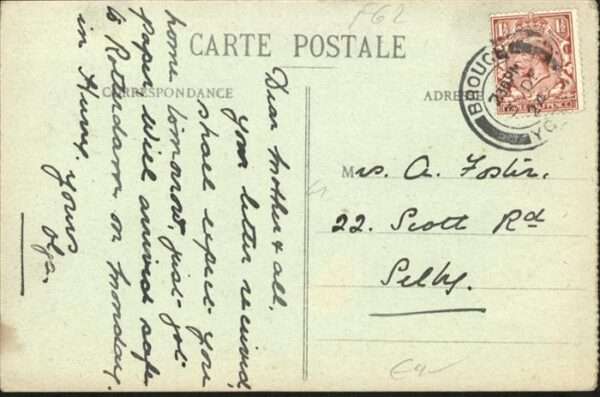 F62
CARTE POSTALE
CORRESPONDANCE
ADRESSE
BROUGH
YO
24
Dear Mother & all,
your letter received,
shall expect you
home tomorrow, just got
paper Will arrived safe
to Rotterdam on Monday.
in Hurry. Yours
Olga.
Mrs. A. Foster,
22. Scott Rd
Selby.